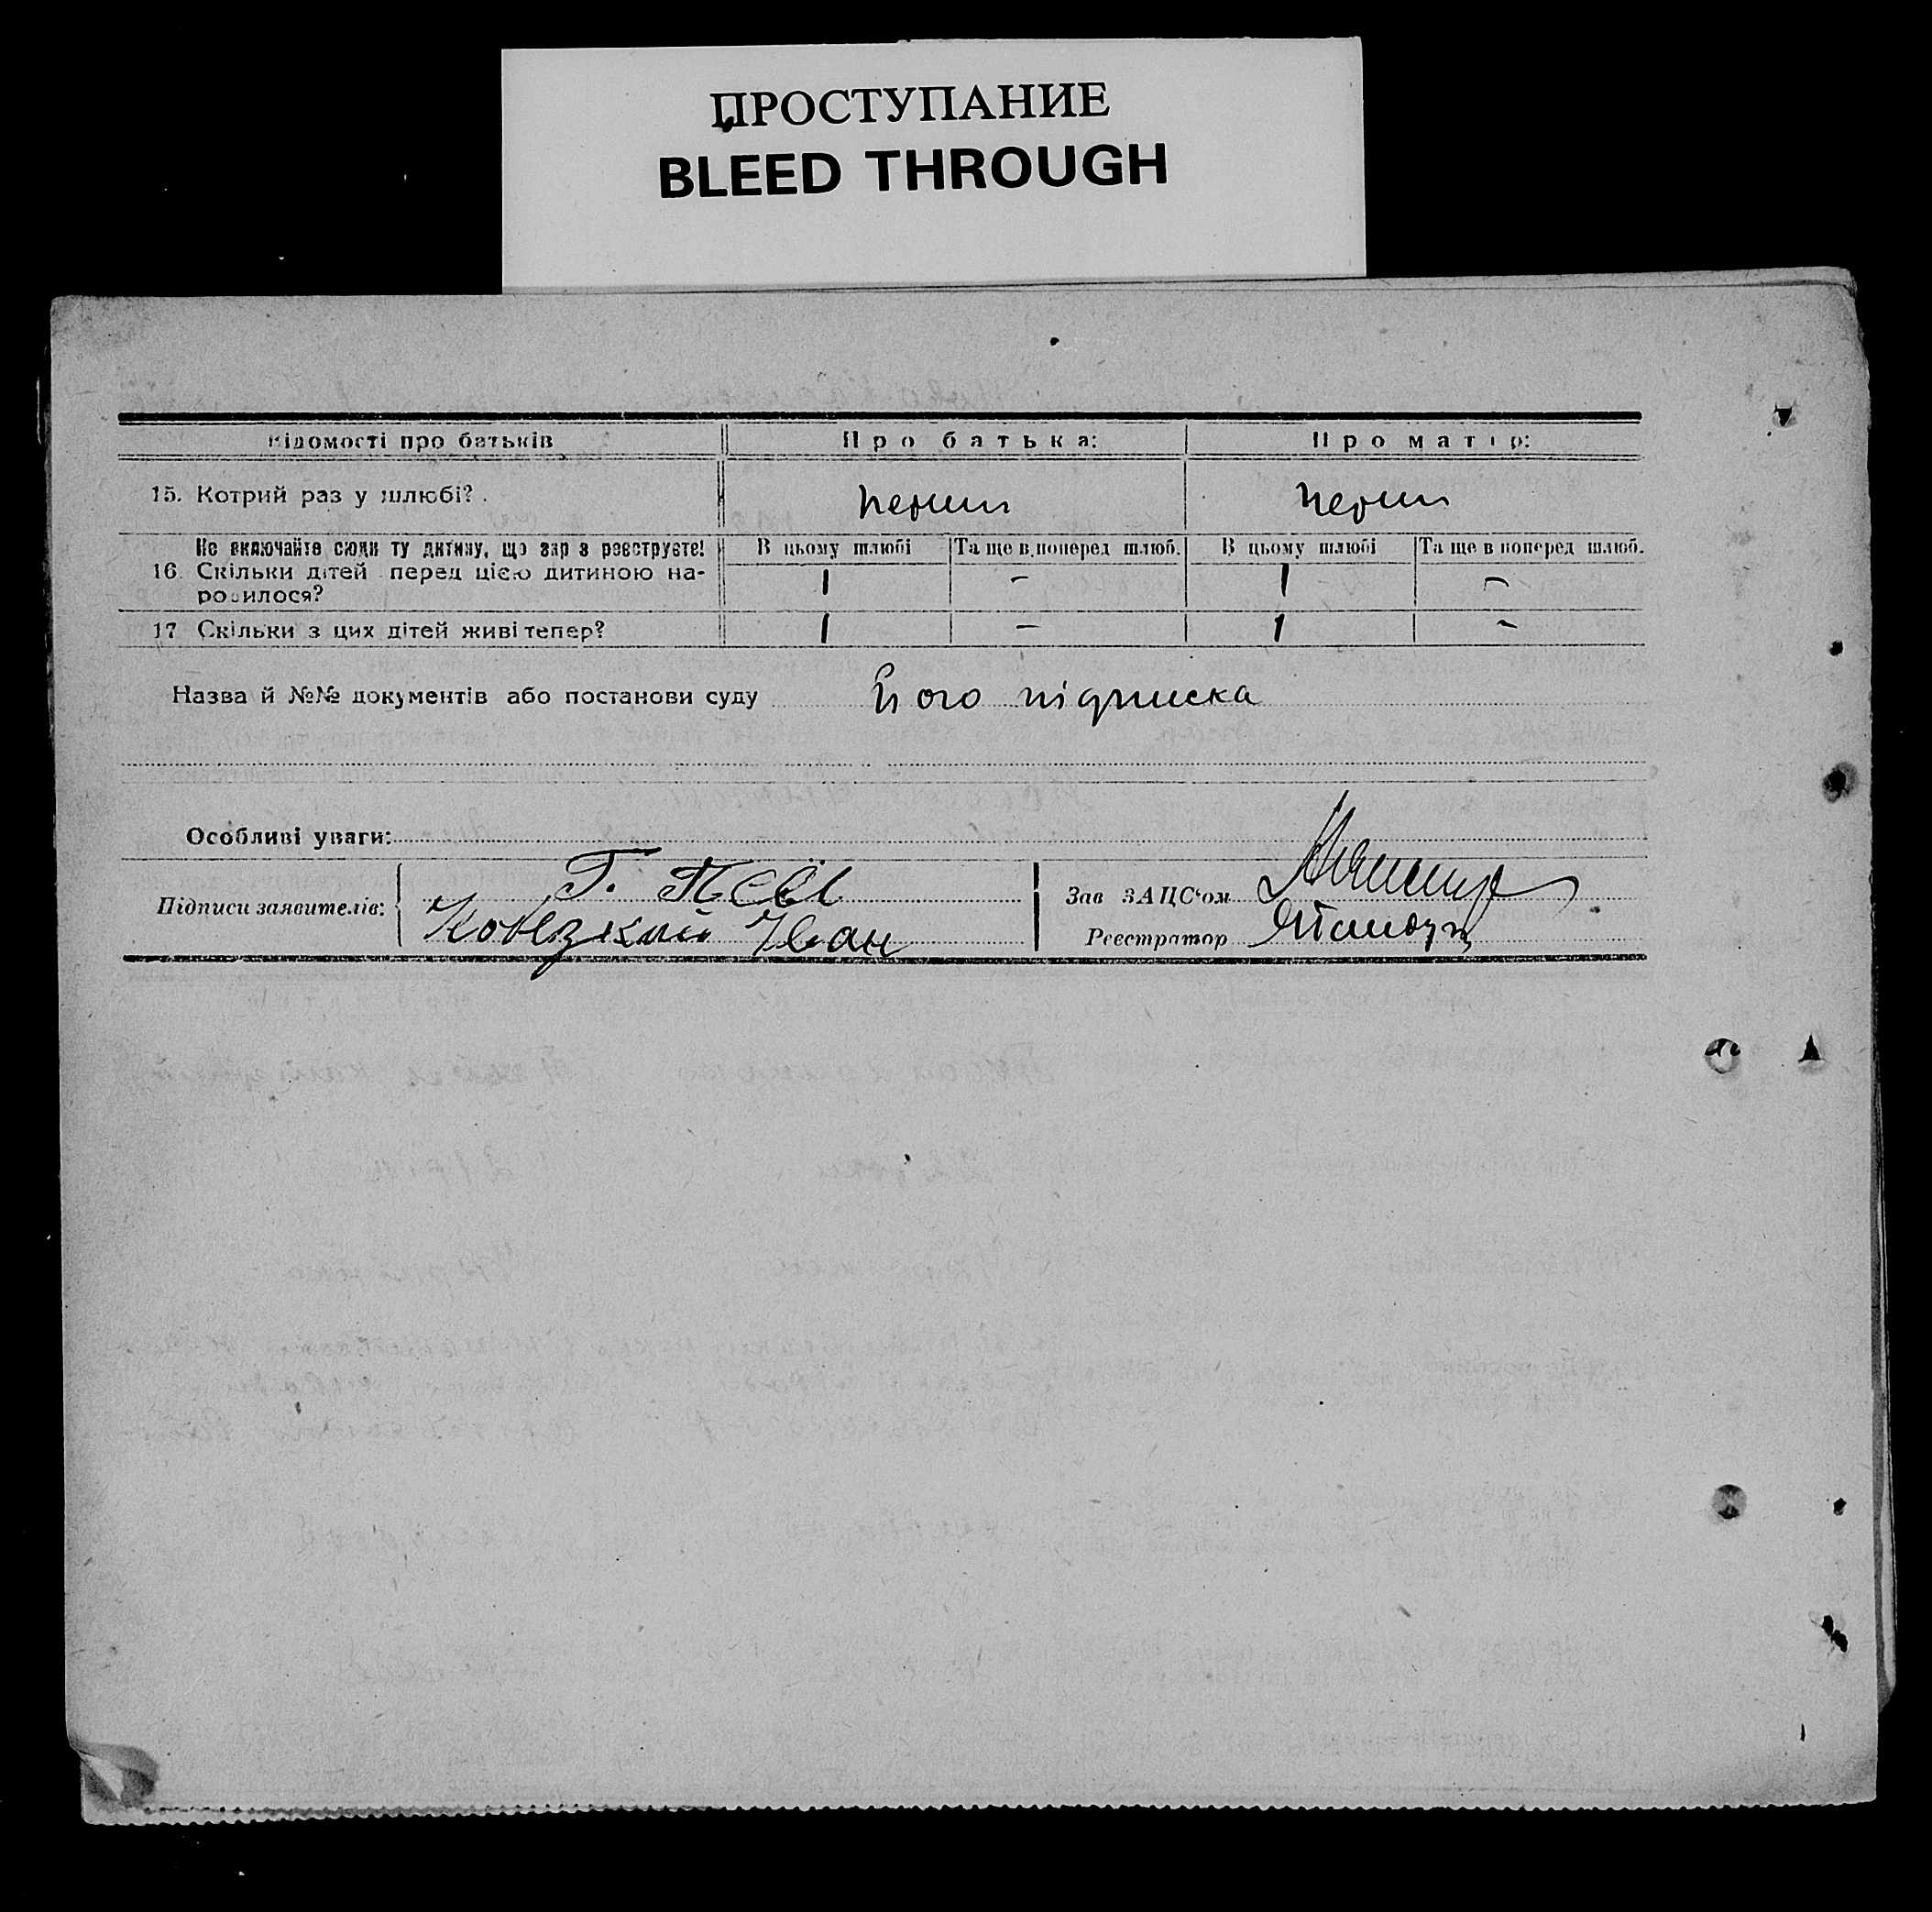 ПРОСТУПАНИЕ
BLEED THROUGH
Відомості про батьків Про батька: Про матір:
15. Котрий раз у шлюбі? перший перший
Не включайте сюди ту дитину, що зараз реєструєте! В цьому шлюбі Та ще в поперед шлюб. В цьому шлюбі Та ще в поперед шлюб.
16. Скільки дітей перед цією дитиною на-
родилося? 1 - 1 -
17 Скільки з цих дітей живі тепер? 1 - 1 -
Назва й №№ документів або постанови суду його підписка
Особливі уваги:
Підписи заявителів: Г.
Іван
Зав ЗАЦС'ом
Реєстратор